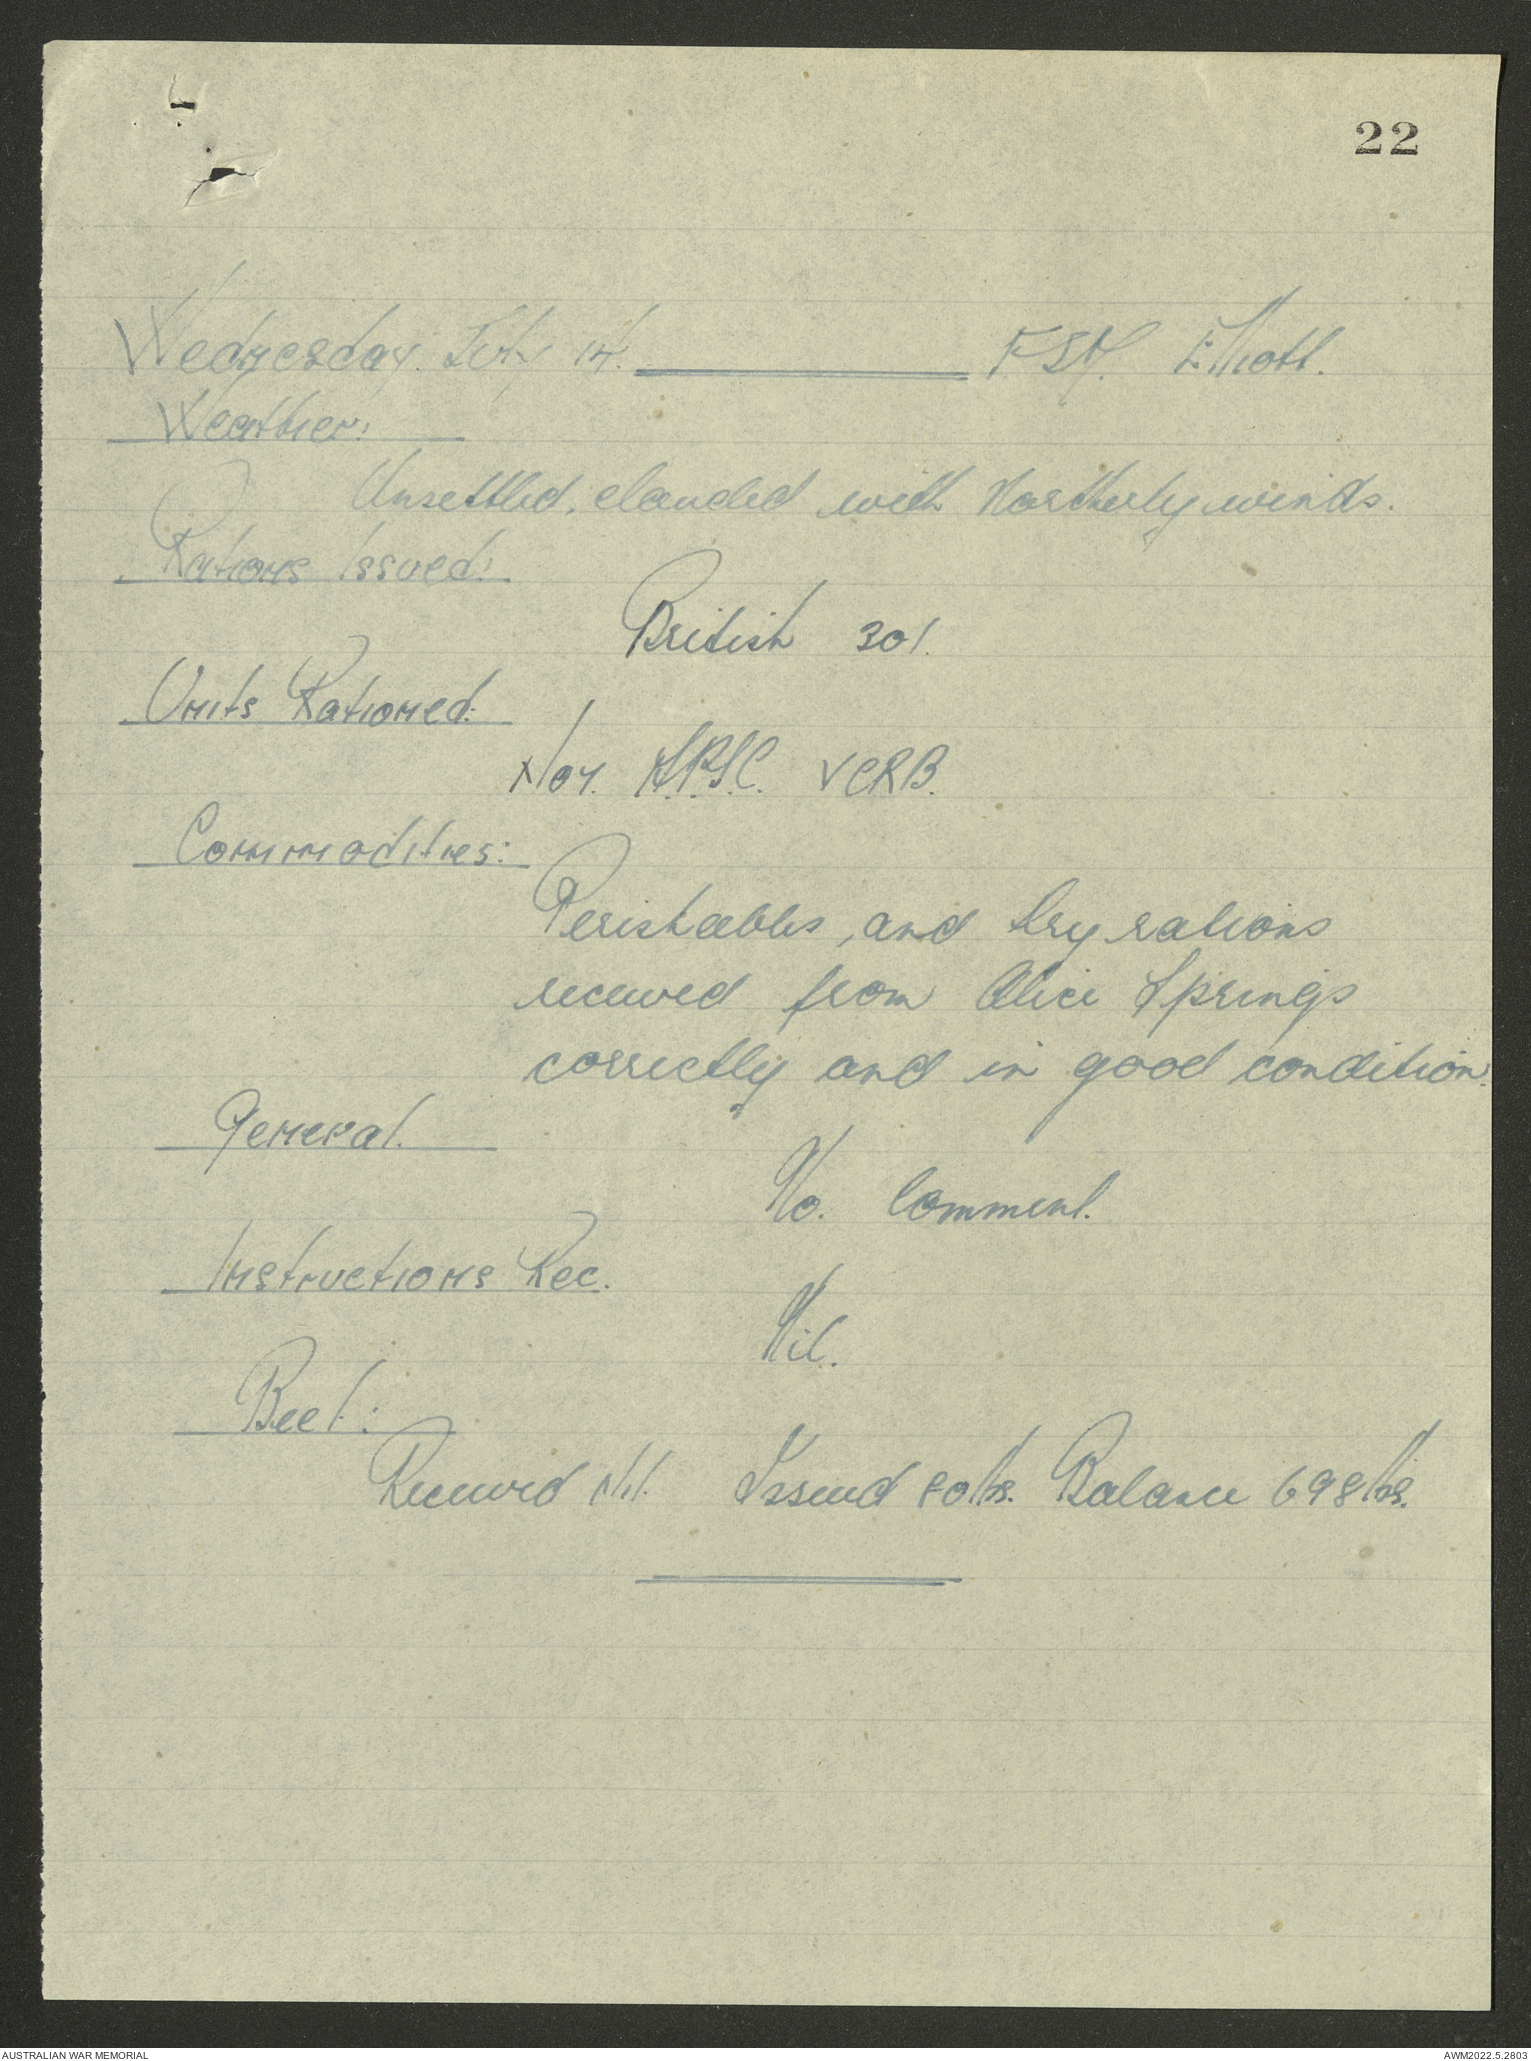 22
Wednesday. July 14. F.S.D. Elliott.
Weather:
Unsettled, clouded with Northerly winds.
Rations Issued:
British 301.
Units Rationed:
VCRB.
Commodities:
Perishables, and dry rations
received from Alice Springs
correctly and in good condition.
General.
No. Comment.
Instructions Rec.
Nil.
Beef:
Received Nil. Issued 80lbs. Balance 698lbs.
AUSTRALIAN WAR MEMORIAL
AWM2022.5.2803